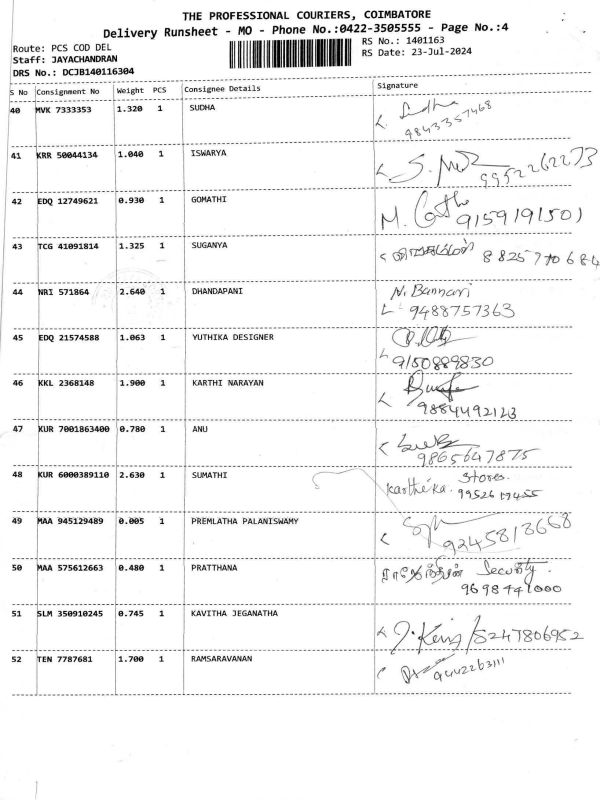 THE PROFESSIONAL COURIERS, COIMBATORE
Delivery Runsheet - MO - Phone No.:0422-3505555 - Page No.:4
Route: PCS COD DEL
RS No.: 1401163
Staff: JAYACHANDRAN
RS Date: 23-Jul-2024
DRS No.: DCJB140116304
S No Consignment No Weight PCS Consignee Details Signature
40 MVK 7333353 1.320 1 SUDHA Sudha
9843357468
41 KRR 50044134 1.040 1 ISWARYA
9952262273
42 EDQ 12749621 0.930 1 GOMATHI M. 
9159191501
43 TCG 41091814 1.325 1 SUGANYA 8825770684
44 NRI 571864 2.640 1 DHANDAPANI N. Bannari
9488757363
45 EDQ 21574588 1.063 1 YUTHIKA DESIGNER
9150889830
46 KKL 2368148 1.900 1 KARTHI NARAYAN
9884492123
47 KUR 7001863400 0.780 1 ANU
9865647875
48 KUR 6000389110 2.630 1 SUMATHI Karthika Stores.
49 MAA 945129489 0.005 1 PREMLATHA PALANISWAMY
9245813668
50 MAA 575612663 0.480 1 PRATTHANA Security.
9698441000
51 SLM 350910245 0.745 1 KAVITHA JEGANATHA
8247806952
52 TEN 7787681 1.700 1 RAMSARAVANAN
9442263111